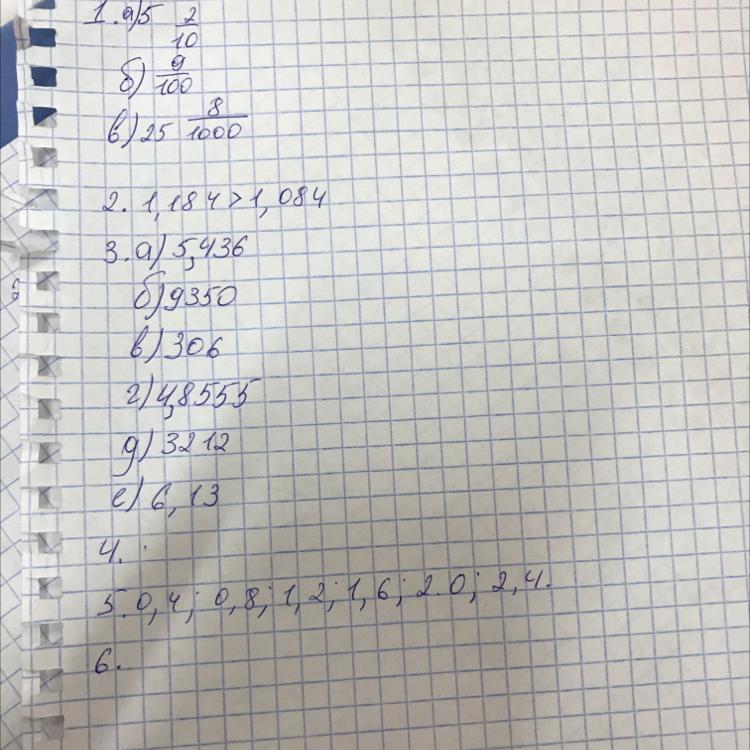 1. а) 5 2/10
б) 9/100
в) 25 8/1000
2. 1,184 > 1,084
3. а) 5,436
б) 9350
в) 306
г) 4,8555
д) 3212
е) 6,13
4.
5. 0,4; 0,8; 1,2; 1,6; 2.0; 2,4.
6.